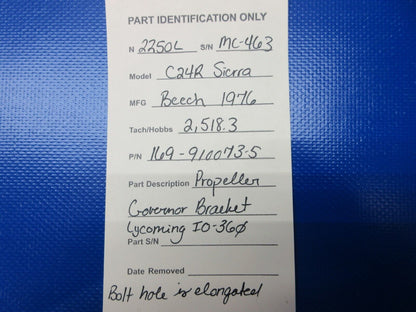 PART IDENTIFICATION ONLY
N 2250L S/N MC-463
Model C24R Sierra
MFG Beech 1976
Tach/Hobbs 2,518.3
P/N 169-910073-5
Part Description Propeller
Governor Bracket
Lycoming IO-360
Part S/N
Date Removed
Bolt hole is elongated